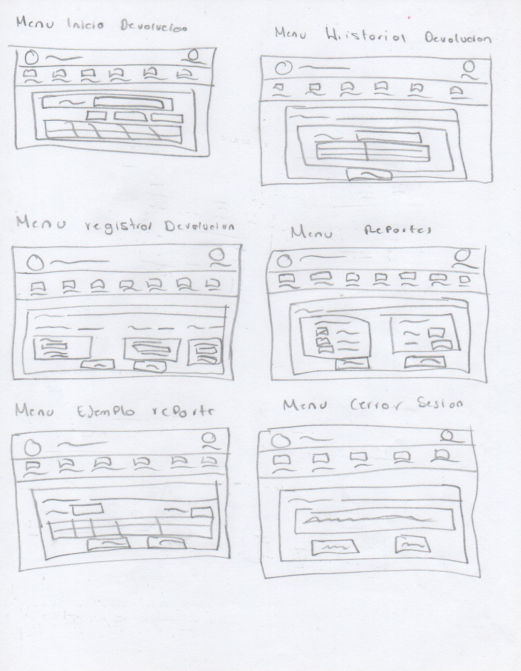 Menu Inicio Devolucion
Menu Historial Devolucion
Menu registrar Devolucion
Menu Reportes
Menu Ejemplo reporte
Menu Cerrar Sesion